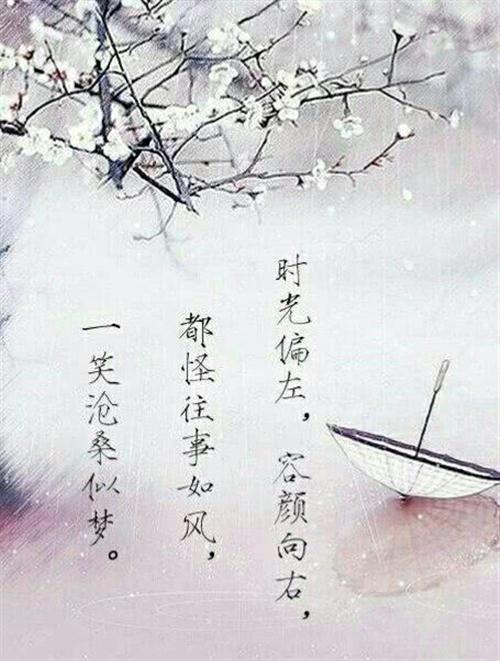 时光偏左，容颜向右，
都怪往事如风，
一笑沧桑似梦。